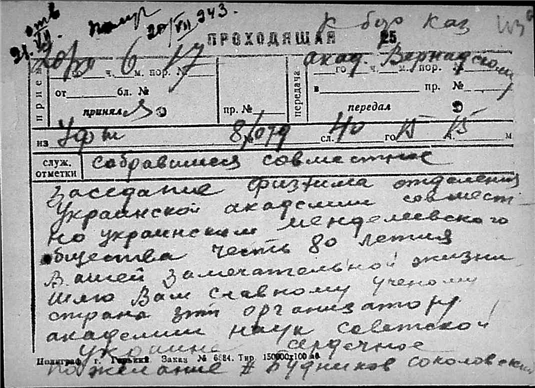 отв
21/VII
20/VII 243.
К бор Каз
ПРОХОДЯЩАЯ 25
6 17
акад. Вернадскому
прием
го ч. м. пор. №
от бл. №
принял
пр. №
передача
го ч. м. пор. №
в пр. №
передал
из Уфы 8/079 сл. 40 го 15 ч. 15 м.
служ. отметки
собравшиеся совместное
заседание физхима отделения
Украинской академии совмест
но украинским менделеевского
общества честь 80 летия
Вашей замечательной жизни
шлю Вам славному ученому
страна зпт организатору
академии наук советской
украине сердечное
пожелание = Будников соколовский
Полиграф г. Горький Заказ № 6684. Тир 150000х100